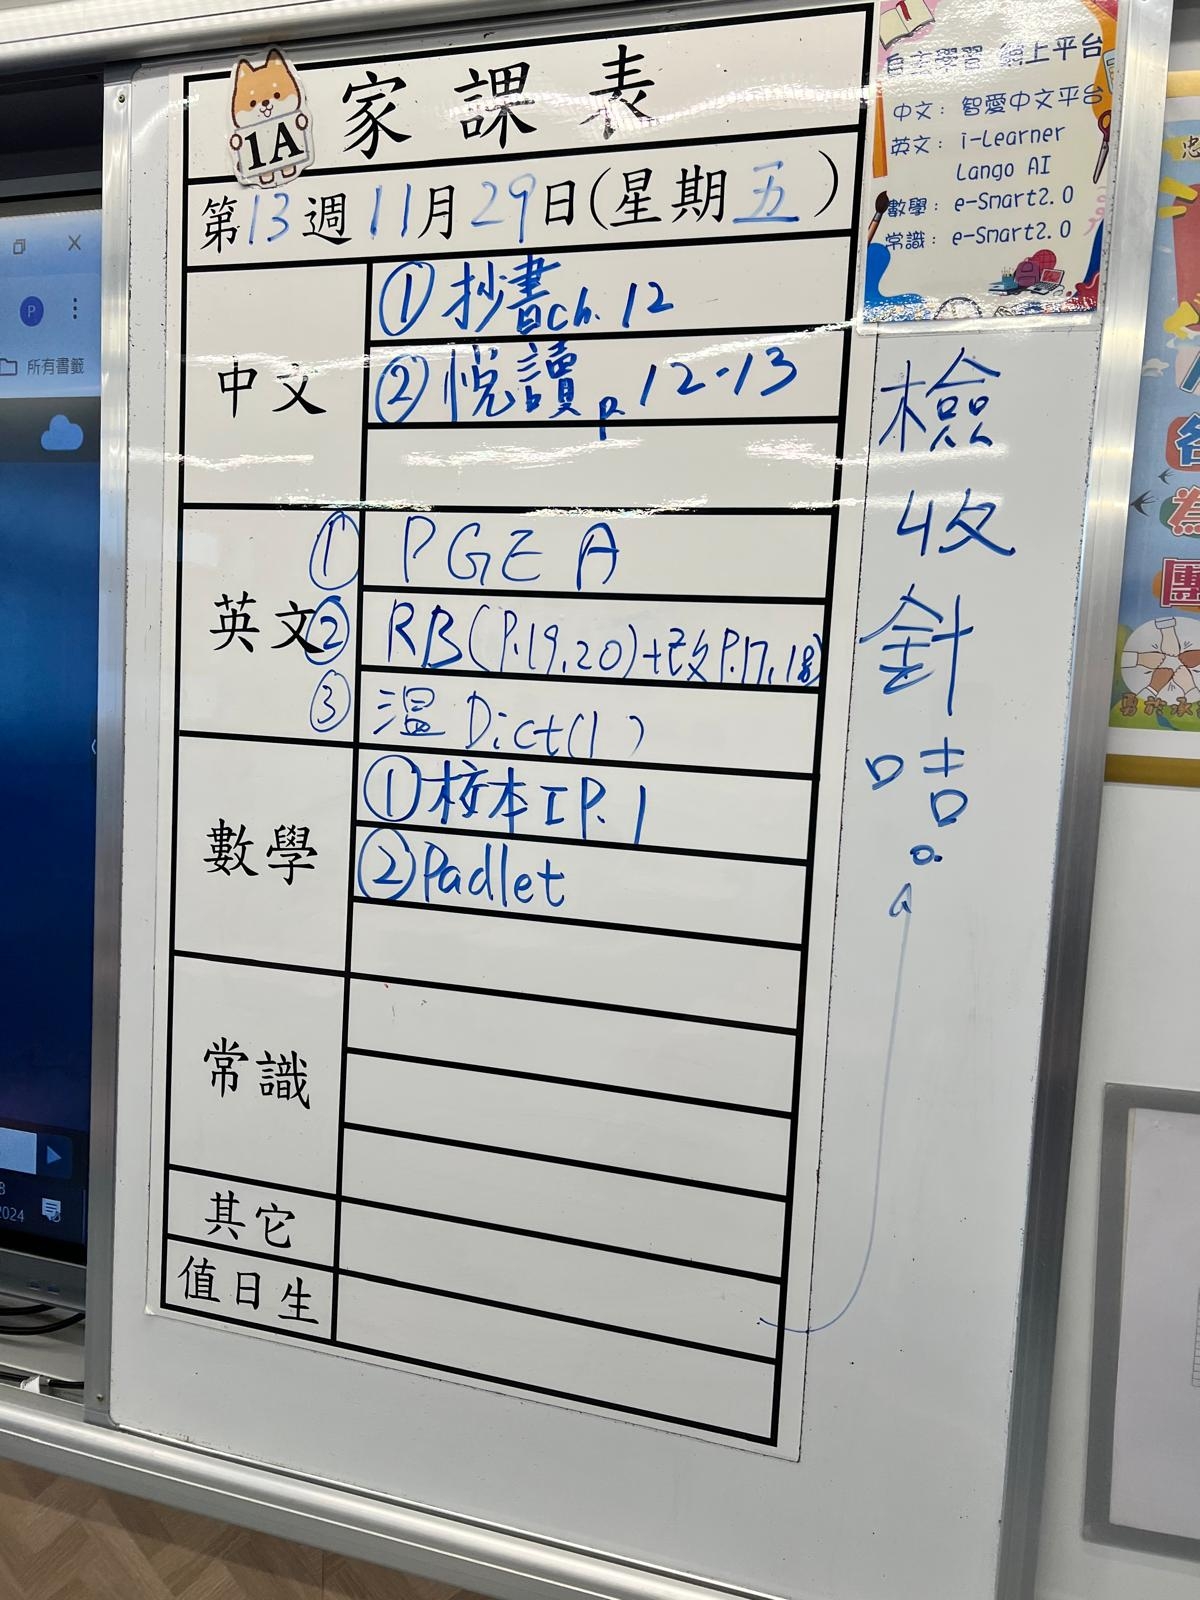 1A 家課表
第13週11月29日(星期五)
中文
①抄書ch.12
②悅讀p.12-13
英文
①PGE A
②RB(P.19,20)+改P.17,18
③溫Dict(1)
數學
①校本IP.1
②Padlet
常識
其它
值日生
自主學習 網上平台
中文：智愛中文平台
英文：i-Learner
Lango AI
數學：e-Smart2.0
常識：e-Smart2.0
檢
收
針
咭。
所有書籤
P
2024
忠
為
團
勇於承